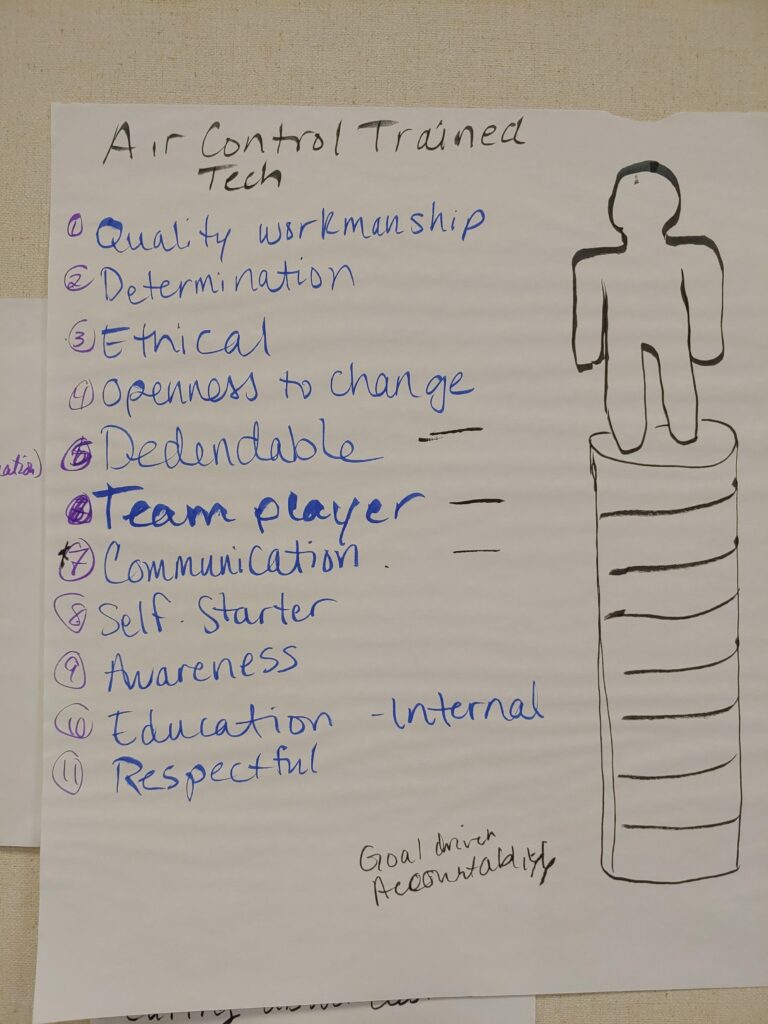 Air Control Trained
Tech
① Quality workmanship
② Determination
③ Ethical
④ Openness to change
⑤ Dedendable
Team player
*⑦ Communication.
⑧ Self. Starter
⑨ Awareness
⑩ Education - Internal
⑪ Respectful
Goal driven
Accountability
ation)